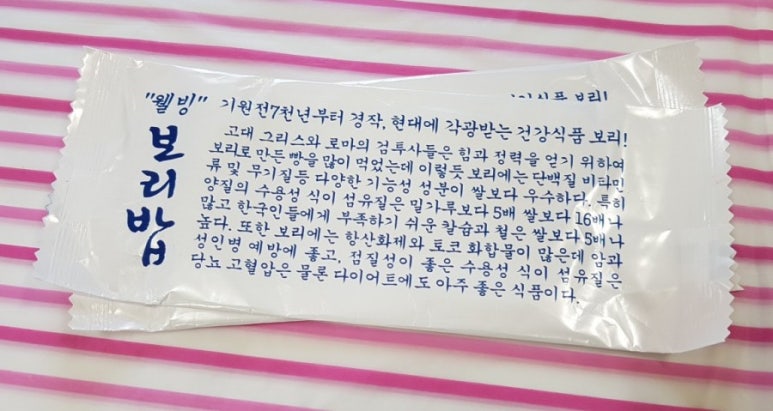 "웰빙"
보리밥
기원전7천년부터 경작, 현대에 각광받는 건강식품 보리!
고대 그리스와 로마의 검투사들은 힘과 정력을 얻기 위하여
보리로 만든 빵을 많이 먹었는데 이렇듯 보리에는 단백질 비타민
류 및 무기질등 다양한 기능성 성분이 쌀보다 우수하다. 특히
양질의 수용성 식이 섬유질은 밀가루보다 5배 쌀보다 16배나
많고 한국인들에게 부족하기 쉬운 칼슘과 철은 쌀보다 5배나
높다. 또한 보리에는 항산화제와 토코 화합물이 많은데 암과
성인병 예방에 좋고, 점질성이 좋은 수용성 식이 섬유질은
당뇨 고혈압은 물론 다이어트에도 아주 좋은 식품이다.
보리!